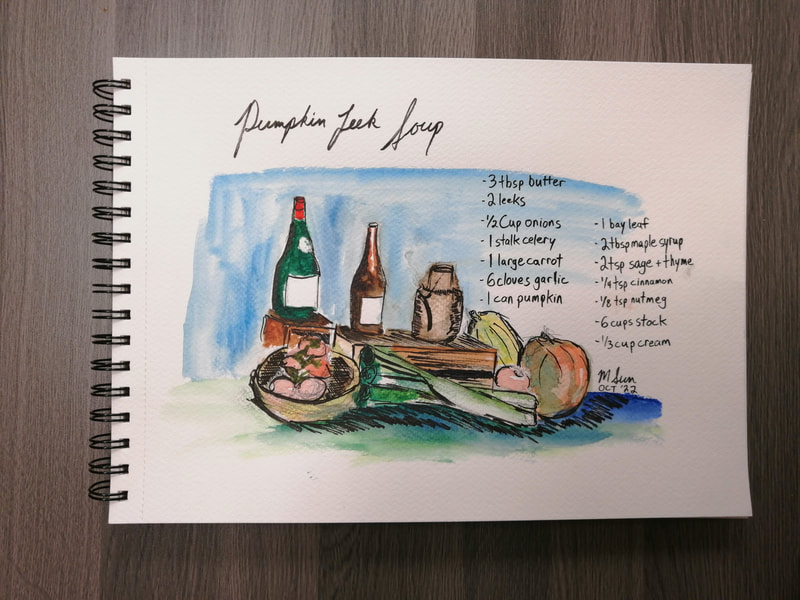 Pumpkin Leek Soup
- 3 tbsp butter
- 2 leeks
- 1/2 Cup onions
- 1 stalk celery
- 1 large carrot
- 6 cloves garlic
- 1 can pumpkin
- 1 bay leaf
- 2 tbsp maple syrup
- 2 tsp sage + thyme
- 1/4 tsp cinnamon
- 1/8 tsp nutmeg
- 6 cups stock
- 1/3 cup cream
M Sun
OCT '22